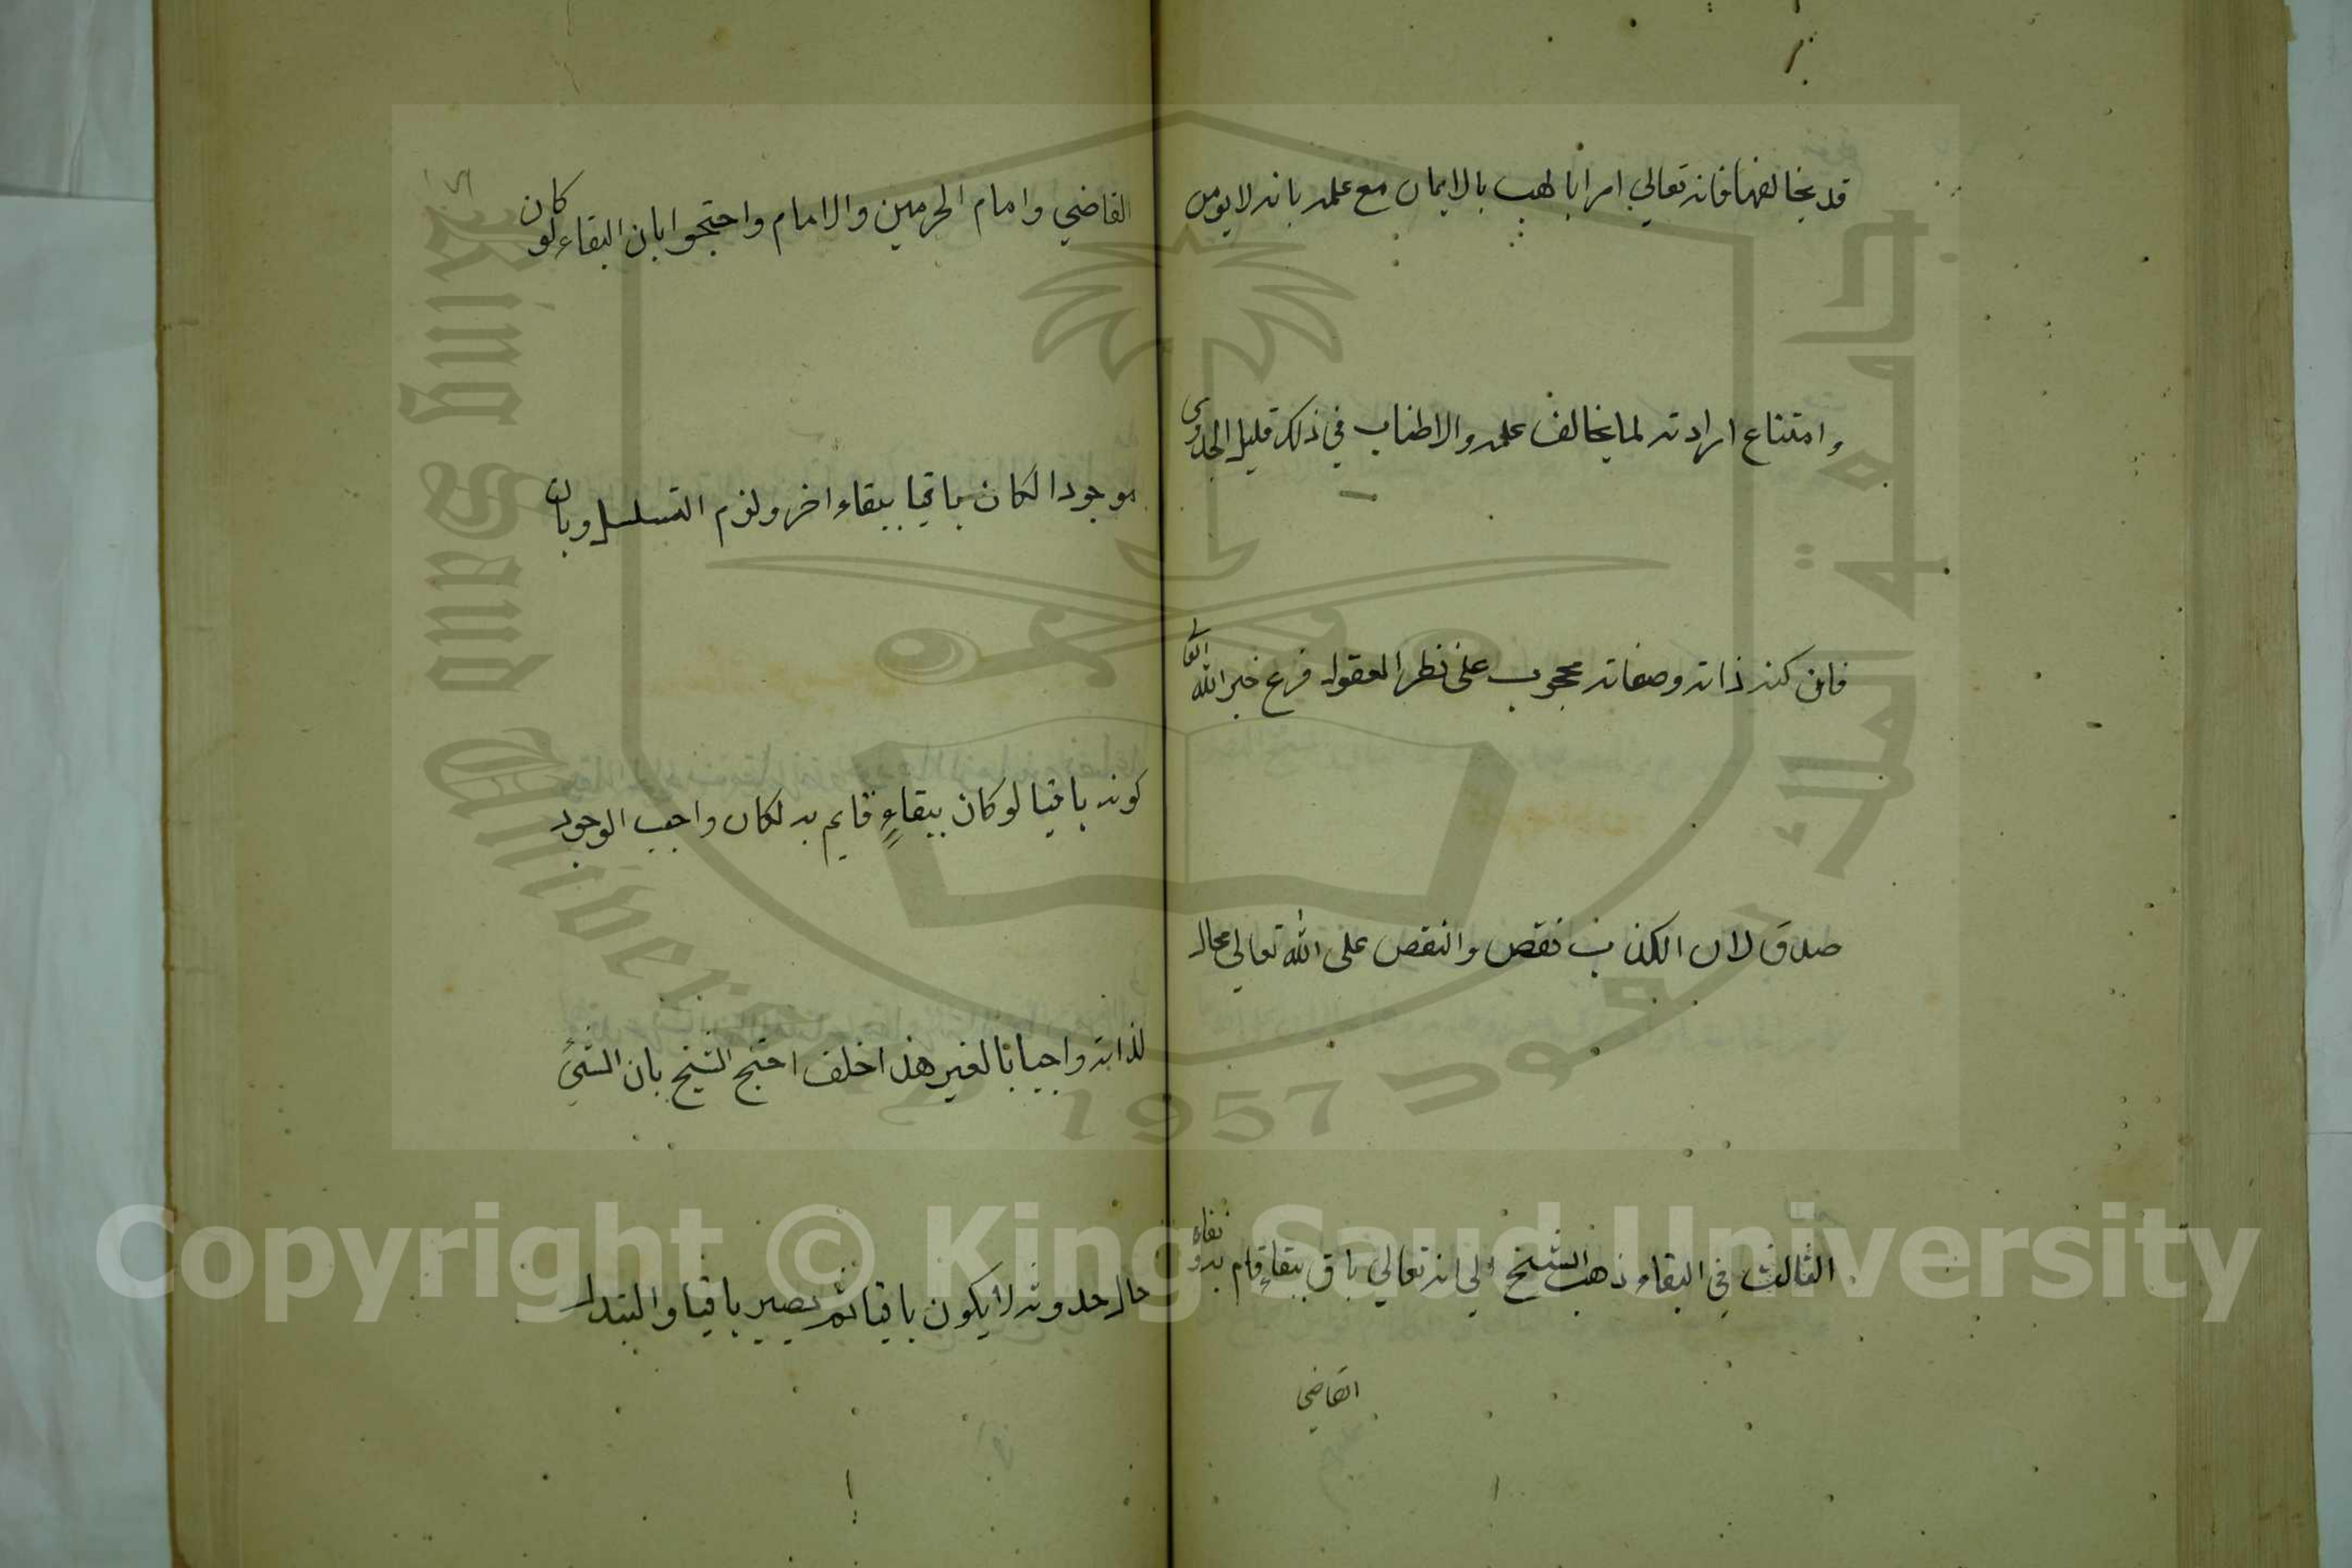 قد يخالفهما فانه تعالي امر ابا لهب بالايمان مع علمه بانه لا يومن
وامتناع ارادته لما يخالف علمه والاطناب في ذلك قليل الجدوى
فان كنه ذاته وصفاته محجوب عن نظر العقول فرع خبر الله تعالى
صدق لان الكذب نقص والنقص على الله تعالي محال
الثالث في البقاء ذهب الشيخ الي انه تعالي باق ببقاءٍ قام به ونفاه
القاضي
القاضي وامام الحرمين والامام واحتجوا بان البقاء لو كان
موجودا لكان باقيا ببقاء اخر ولزم التسلسل وبان
كونه باقيا لو كان ببقاءٍ قايم به لكان واجب الوجود
لذاته واجبا بالغير هذا خلف احتج الشيخ بان الشيئ
حال حدوثه لا يكون باقيا ثم يصير باقيا والتبدل
جامعة الملك سعود
King Saud University
1957
Copyright © King Saud University